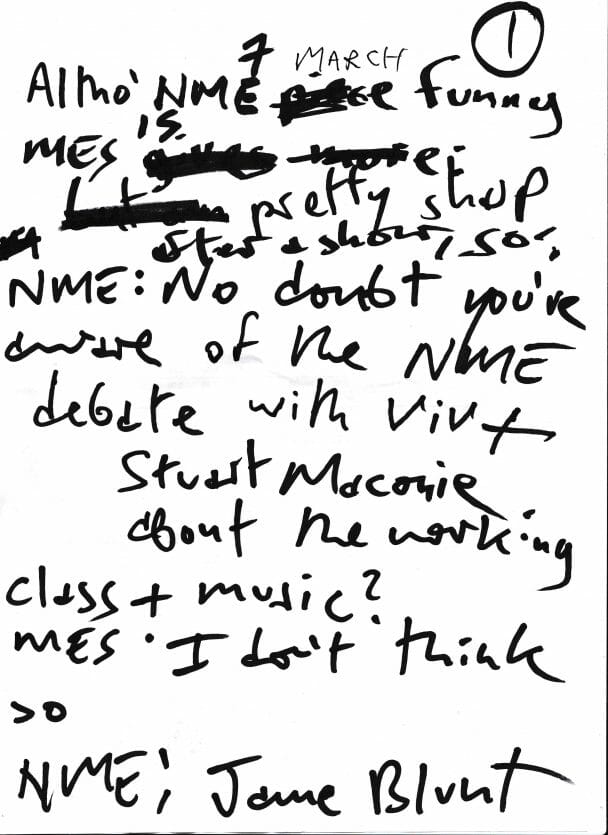 1
7 MARCH
Altho' NME funny
MES is
pretty sharp
after a show, so:
NME: No doubt you're
aware of the NME
debate with Viv +
Stuart Maconie
about the working
class + music?
MES: I don't think
so
NME: Jame Blunt